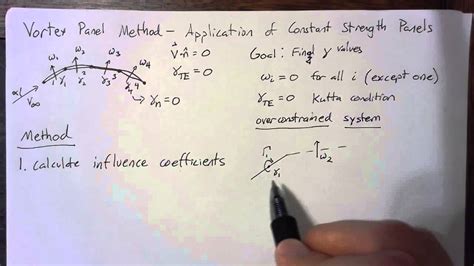 Vortex Panel Method – Application of Constant Strength Panels
ω₁ ω₂ ω₃ ω₄
1 γ₁ 2 γ₂ 3 γ₃ 4 γ₄
α V∞
V⃗·n̂ = 0
γ_TE = 0
γₙ = 0
Goal: Find γ values
ωᵢ = 0 for all i (except one)
γ_TE = 0 Kutta condition
overconstrained system
Method
1. calculate influence coefficients
Γ₁ γ₁ ω₂